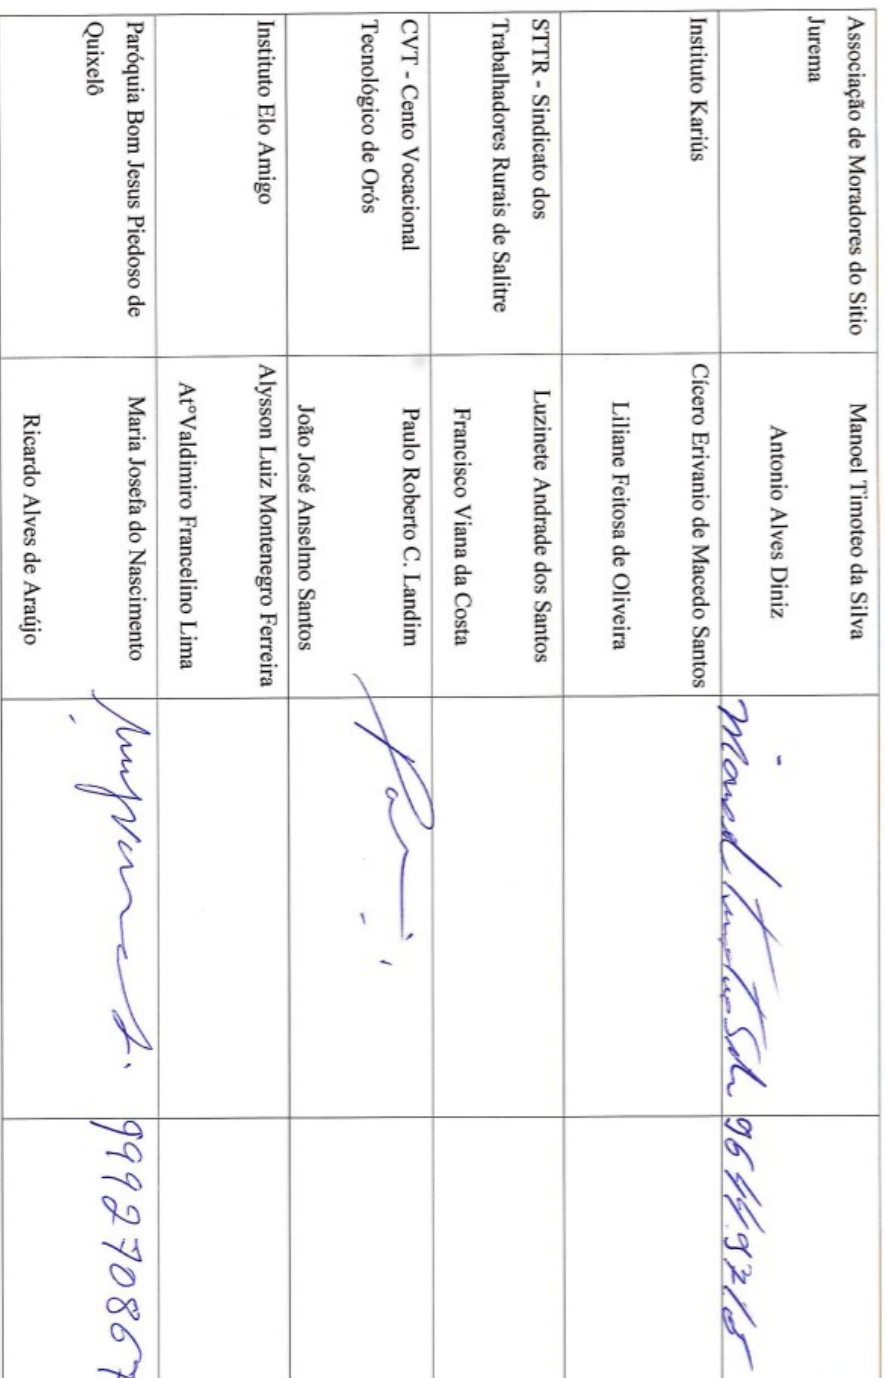 Associação de Moradores do Sitio
Jurema
Manoel Timoteo da Silva
Antonio Alves Diniz
Manoel
Instituto Kariús
Cícero Erivanio de Macedo Santos
Liliane Feitosa de Oliveira
STTR - Sindicato dos
Trabalhadores Rurais de Salitre
Luzinete Andrade dos Santos
Francisco Viana da Costa
CVT - Cento Vocacional
Tecnológico de Orós
Paulo Roberto C. Landim
João José Anselmo Santos
Instituto Elo Amigo
Alysson Luiz Montenegro Ferreira
AtºValdimiro Francelino Lima
Paróquia Bom Jesus Piedoso de
Quixelô
Maria Josefa do Nascimento
Ricardo Alves de Araújo
999270867